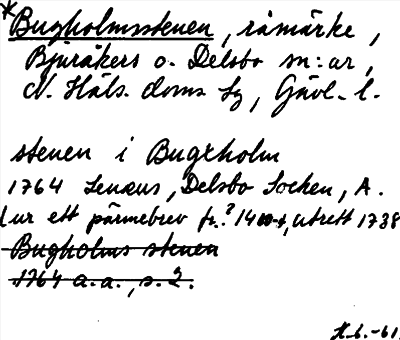 * Bugholmsstenen, råmärke,
Bjuråkers o. Delsbo sn:ar,
N. Häls. doms. tg, Gävl. l.
stenen i Bugxholm
1764 Lenæus, Delsbo Socken, A.
(ur ett pärmebrev fr.? 1400-t, utrett 1738
Bugholms stenen
1764 a.a., s. 2.
H.6.-61.